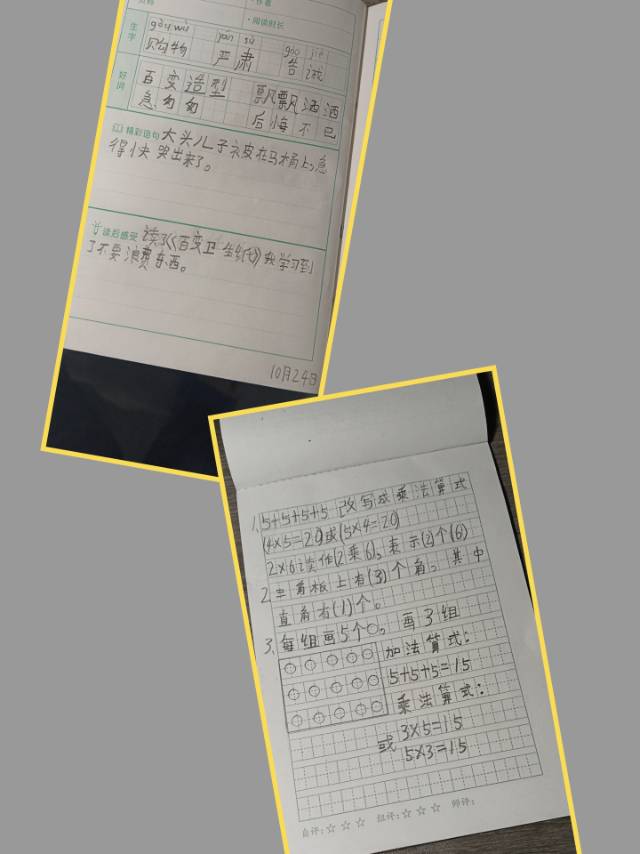 ·作者
·阅读时长
生字
gòu wù
yán sù
gào jiè
购物
严肃
告诫
好词
百变造型
飘飘洒洒
急匆匆
后悔不已
精彩造句 大头儿子被皮在马桶上,急
得快哭出来了。
读后感受 读了《百变卫生纸》我学习到
了不要浪费东西。
10月24日
1. 5+5+5+5 改写成乘法算式
(4×5=20)或(5×4=20)
2×6读作(2乘6),表示(2)个(6)
2. 三角板上有(3)个角。其中
直角有(1)个。
3. 每组画5个○,画3组
加法算式:
5+5+5=15
乘法算式:
3×5=15
或
5×3=15
自评:☆ ☆ ☆ 组评:☆ ☆ ☆ 师评: